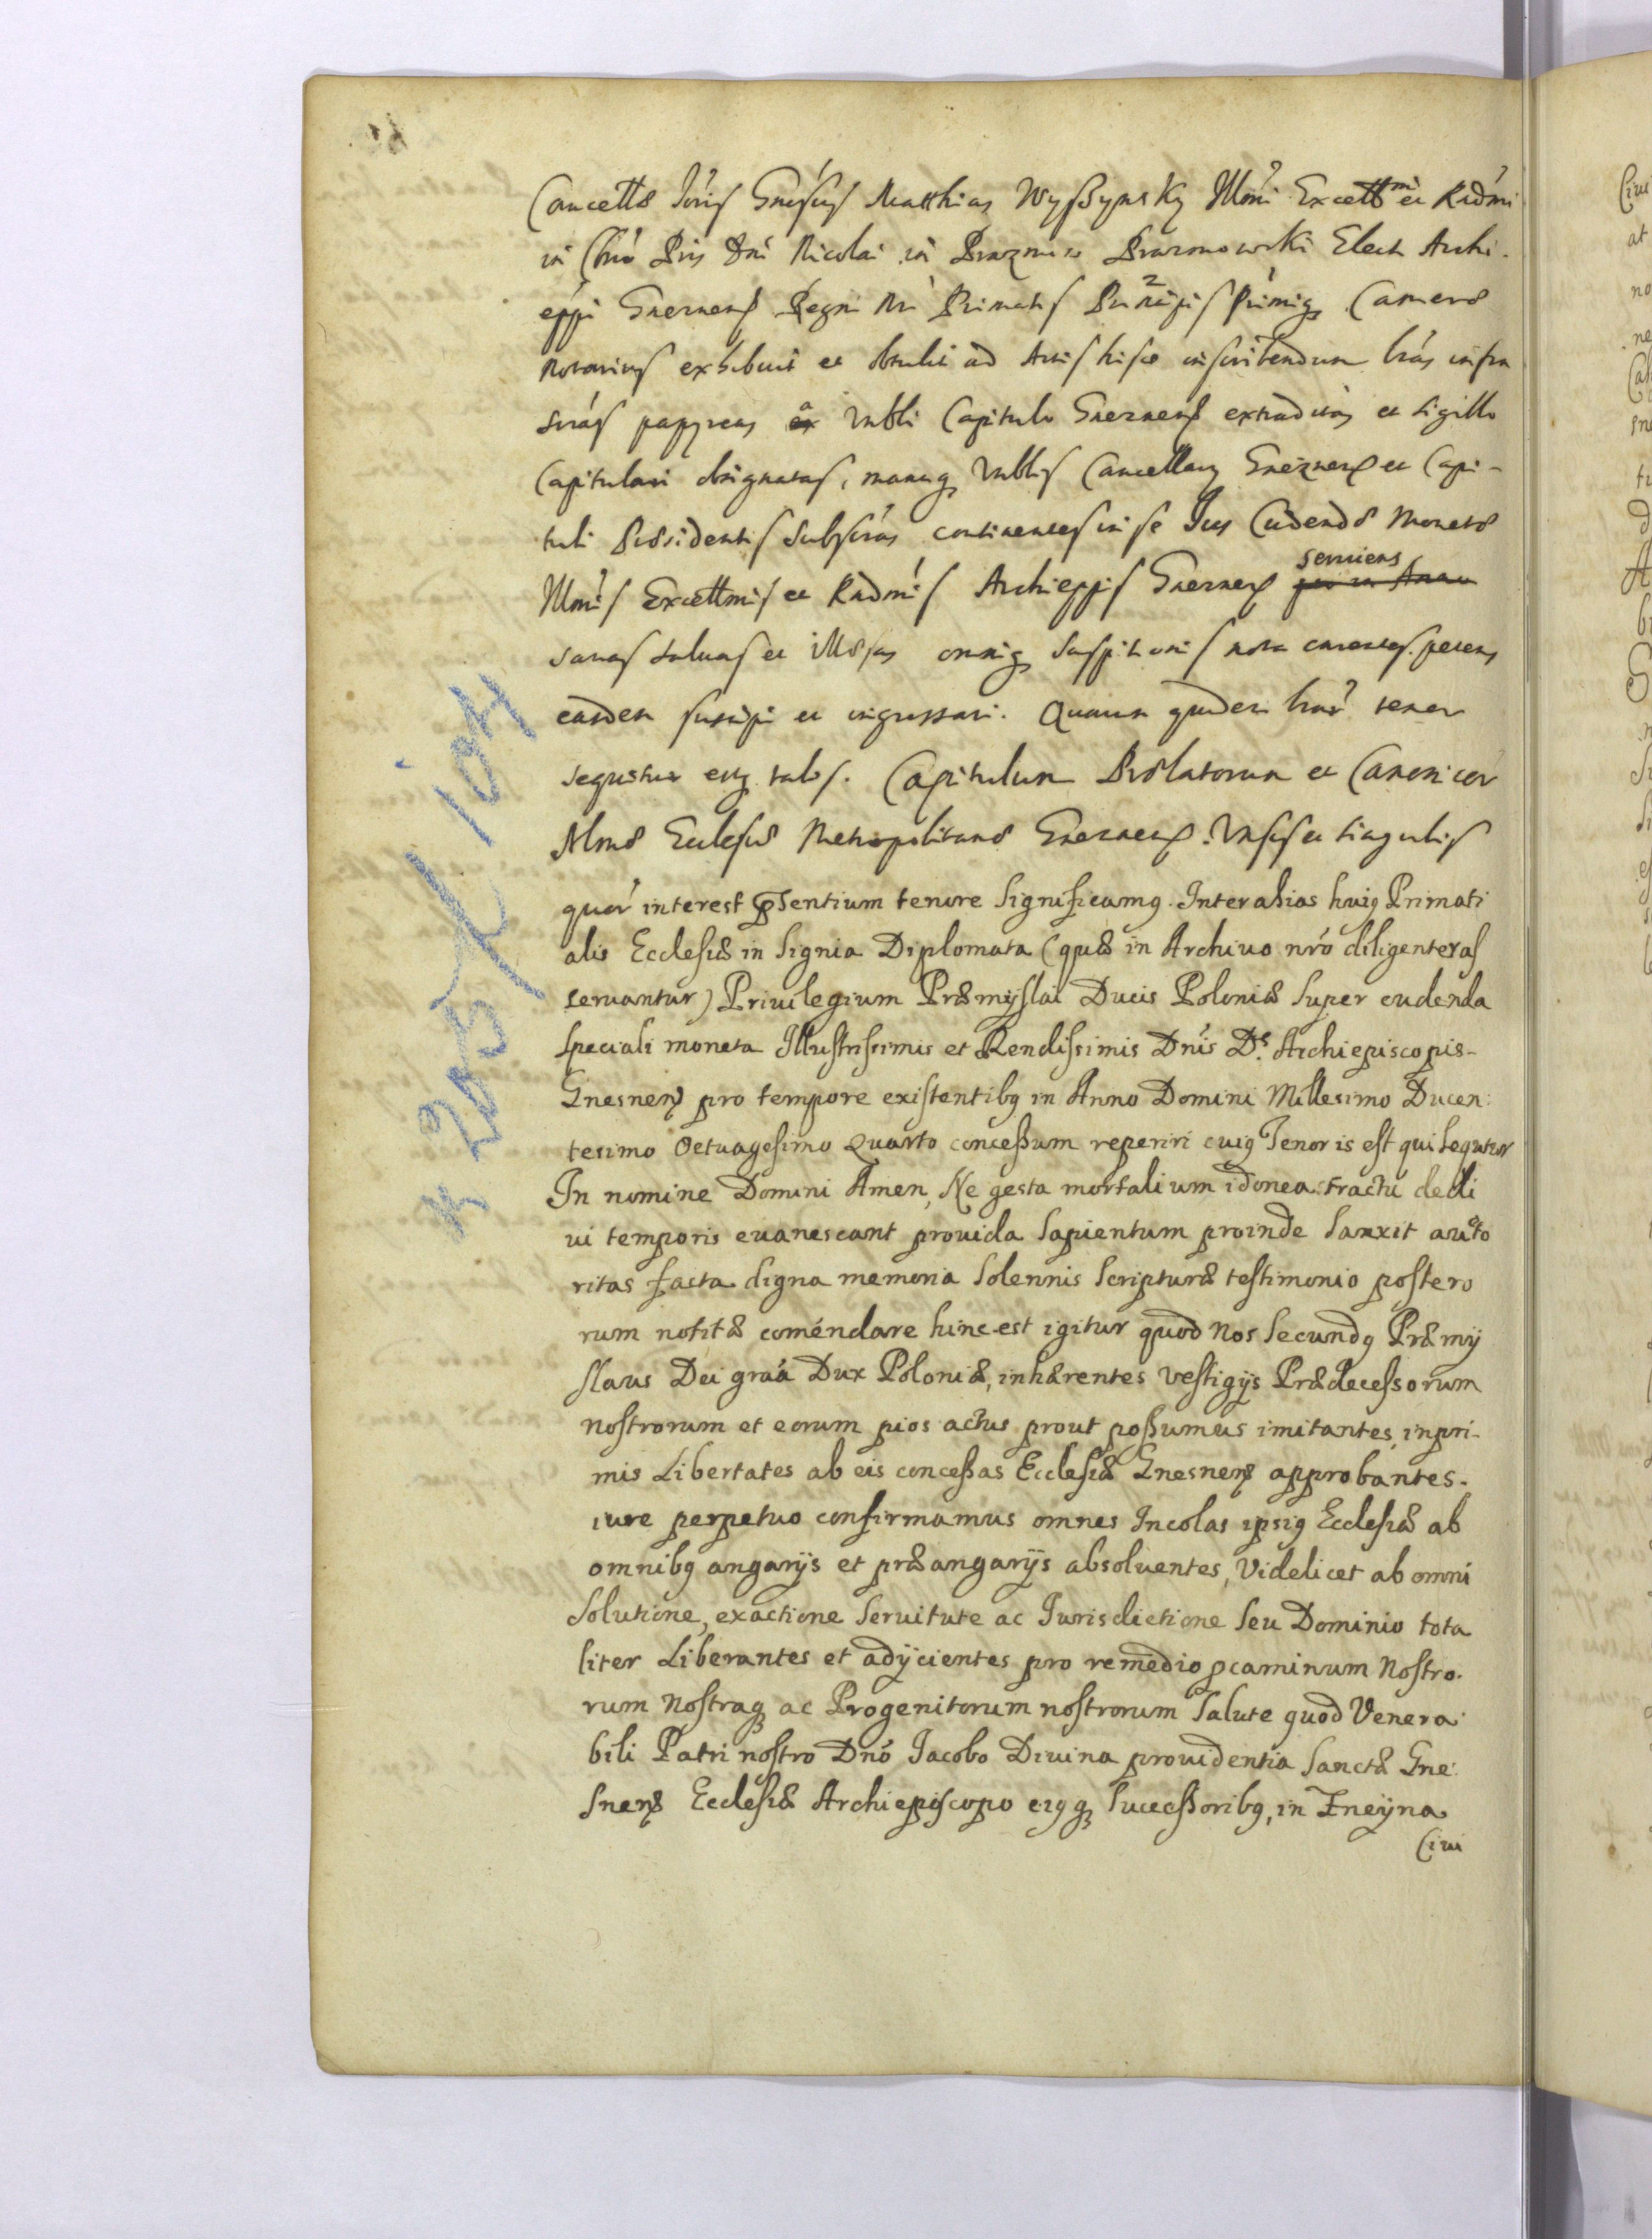 Cancellæ Matthias Wyssynsky Illmi Excellmi et Rndmi
in Chro Pris Dni Nicolai in Prazmow Prazmowski Elect Archi-
eppi Gneznens Regni Primatis Principis Primiq Cameræ
Notarius exhibuit et obtulit ad Actis hisce inscribendum lras infra
scras papyreas a Vnbli Capitulo Gneznens extraditas et sigillo
Capitulari obsignatas, manuq Vnblis Cancellarij Gneznens et Capi-
tuli Præsidentis subscras continentes in se Jus Cudendæ Monetæ
Illmis Excellmis et Rndmis Archieppis Gneznens seruiens
sanas saluas et illæsas omniq suspitionis nota carentes petens
easdem suscipi et ingrossari. Quarum quidem lrar tenor
sequitur estq talis. Capitulum Prælatorum et Canonicor
Almæ Ecclesiæ Metropolitanæ Gneznens. Vnsis et singulis
quor interest præsentium tenore significamq. Inter alias huiq Primati
alis Ecclesiæ insignia Diplomata (quæ in Archiuo nro diligenter as
seruantur) Priuilegium Præmyslai Ducis Poloniæ super cudenda
speciali moneta Illustrissimis et Rendissimis Dnis Ds. Archiepiscopis-
Gnesnens pro tempore existentibq in Anno Domini Millesimo Ducen:
tesimo Octuagesimo Quarto concessum reperiri cuiq Tenor is est qui sequitur
In nomine Domini Amen, Ne gesta mortalium idonea tractu decli
ui temporis euanescant prouida sapientum proinde sanxit aucto
ritas facta digna memoria solennis scripturæ testimonio postero
rum notitæ coméndare hinc est igitur quod Nos secundq Præmy
slaus Dei graa Dux Poloniæ, inhærentes vestigijs Prædecessorum
nostrorum et eorum pios actus prout possumus imitantes, inpri-
mis Libertates ab eis concessas Ecclesiæ Gnesnens approbantes.
iure perpetuo confirmamus omnes Incolas ipsiq Ecclesiæ ab
omnibq angarijs et præangarijs absoluentes, Videlicet ab omni
solutione, exactione seruitute ac Jurisdictione seu Dominio tota
liter Liberantes et adijcientes pro remedio pcaminum Nostro.
rum Nostraq ac Progenitorum nostrorum salute quod Venera
bili Patri nostro Dno Jacobo Diuina prouidentia Sanctæ Gne
snens Ecclesiæ Archiepiscopo eiqq successoribq, in Zneyna
Ciui